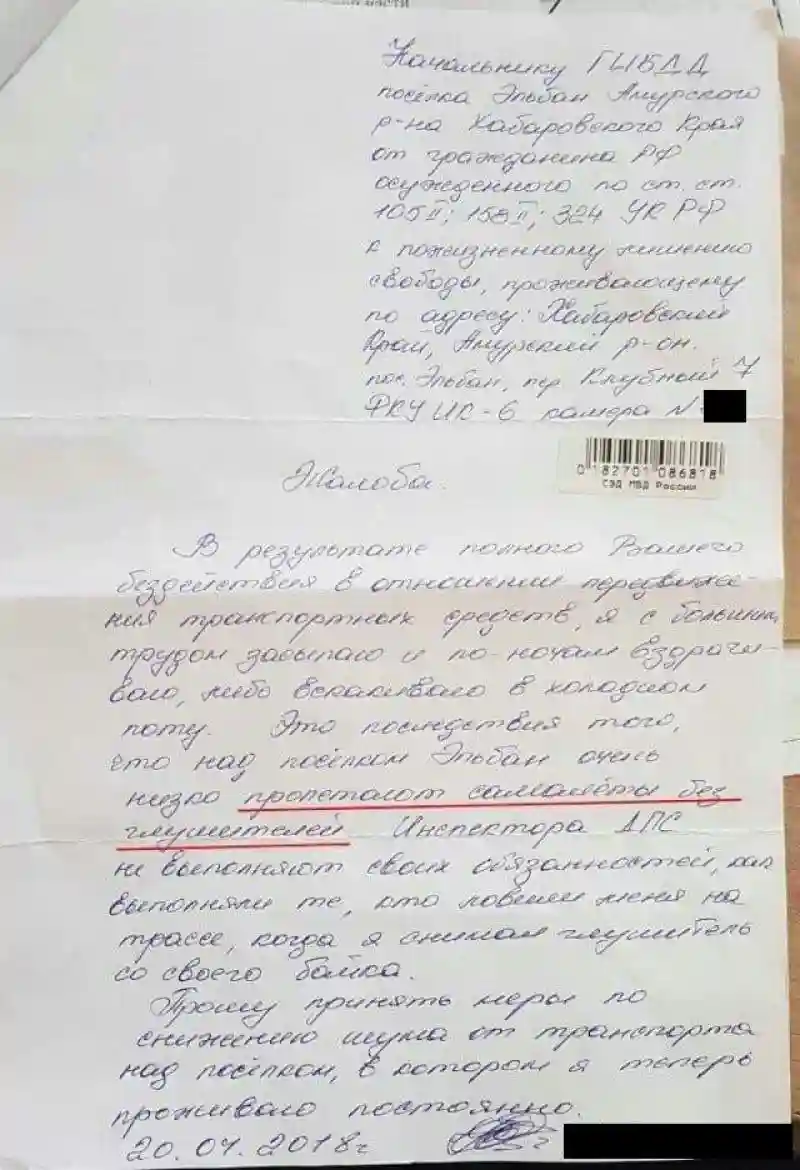 Начальнику ГИБДД
посёлка Эльбан Амурского
р-на Хабаровского Края
от гражданина РФ
осужденного по ст. ст.
105 II; 158 II; 324 УК РФ
к пожизненному лишению
свободы, проживающему
по адресу: Хабаровский
Край, Амурский р-он.
пос. Эльбан, пер. Клубный 7
ФКУ ИК-6 камера №
0 182701 086818
СЭД МВД России
Жалоба.
В результате полного Вашего
бездействия в отношении передвиже-
ния транспортных средств, я с большим
трудом засыпаю и по-ночам вздраги-
ваю, либо вскакиваю в холодном
поту. Это последствия того,
что над посёлком Эльбан очень
низко пролетают самолёты без
глушителей Инспектора ДПС
не выполняют своих обязанностей, как
выполняли те, кто ловили меня на
трассе, когда я снимал глушитель
со своего байка.
Прошу принять меры по
снижению шума от транспорта
над посёлком, в котором я теперь
проживаю постоянно.
20.04.2018г